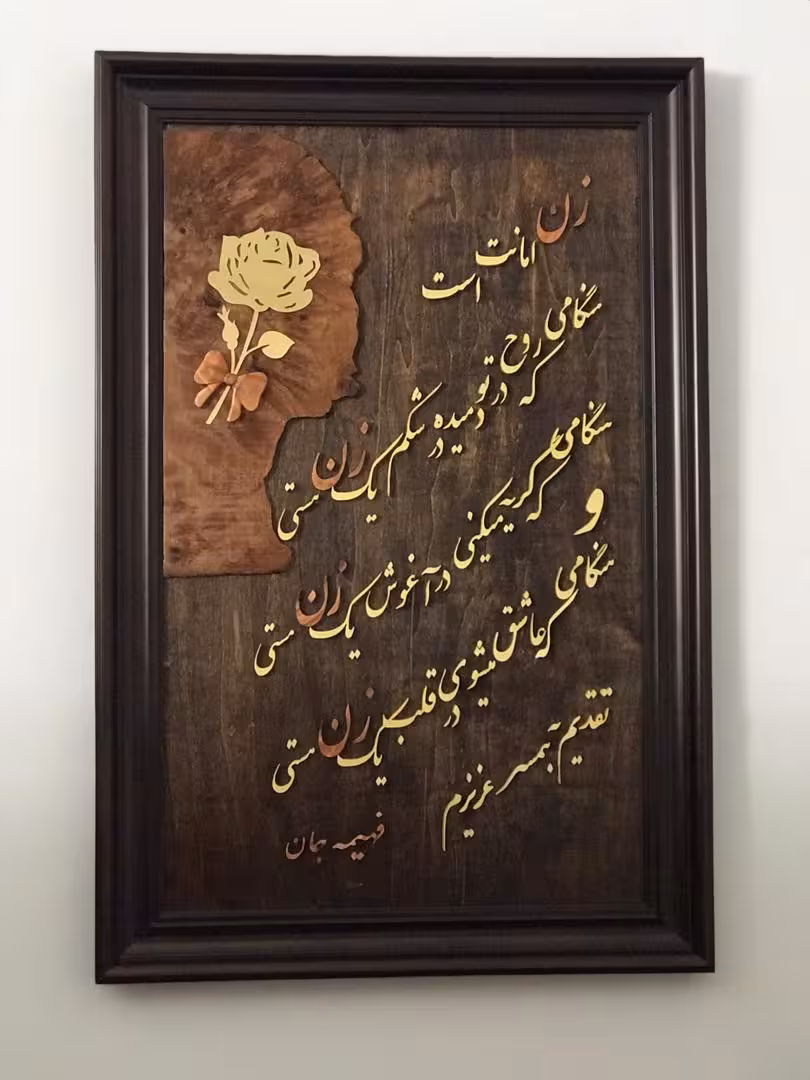 زن امانت است
هنگامی که روح در تو دمیده در شکم یک زن هستی
هنگامی که گریه میکنی در آغوش یک زن هستی
و
هنگامی که عاشق میشوی در قلب یک زن هستی
تقدیم به همسر عزیزم
فهیمه جان